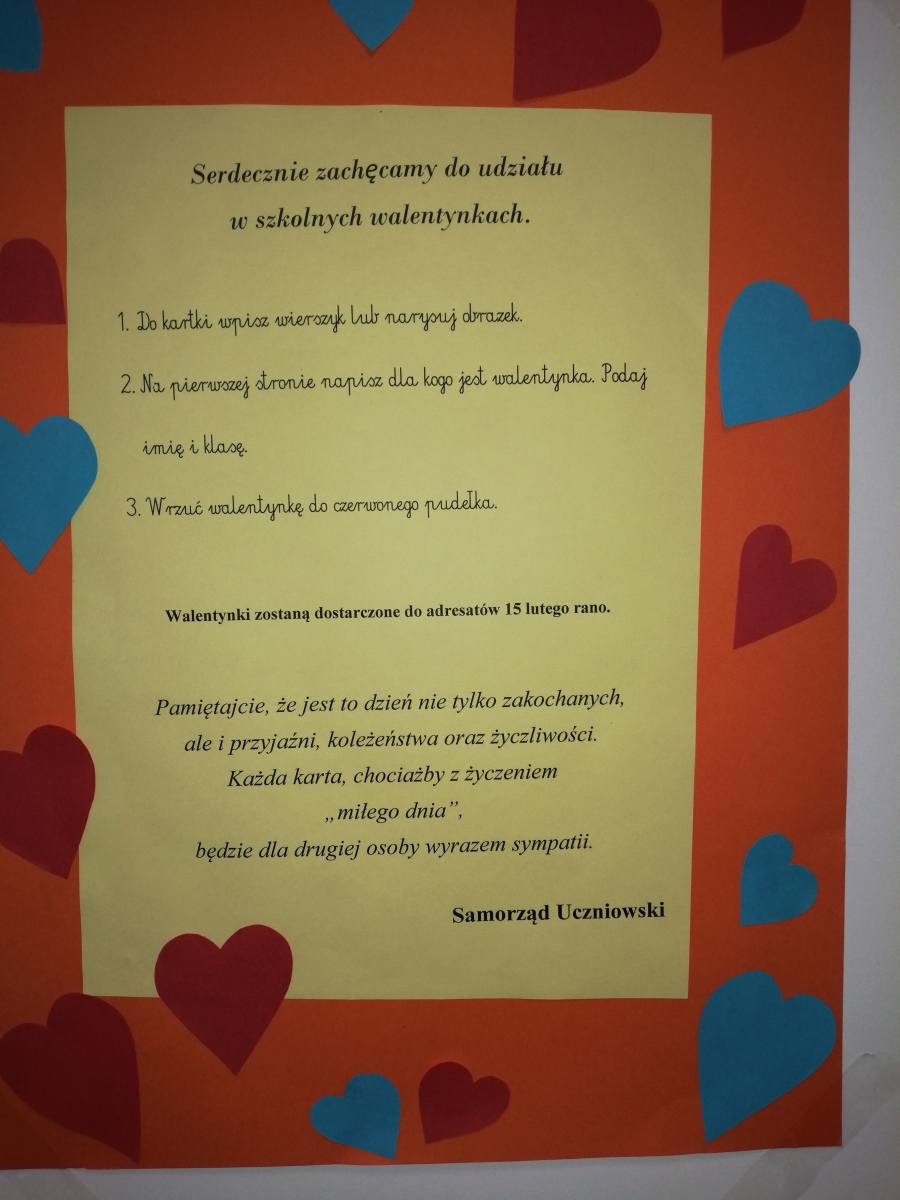 Serdecznie zachęcamy do udziału
w szkolnych walentynkach.
1. Do kartki wpisz wierszyk lub narysuj obrazek.
2. Na pierwszej stronie napisz dla kogo jest walentynka. Podaj
imię i klasę.
3. Wrzuć walentynkę do czerwonego pudełka.
Walentynki zostaną dostarczone do adresatów 15 lutego rano.
Pamiętajcie, że jest to dzień nie tylko zakochanych,
ale i przyjaźni, koleżeństwa oraz życzliwości.
Każda karta, chociażby z życzeniem
„miłego dnia”,
będzie dla drugiej osoby wyrazem sympatii.
Samorząd Uczniowski